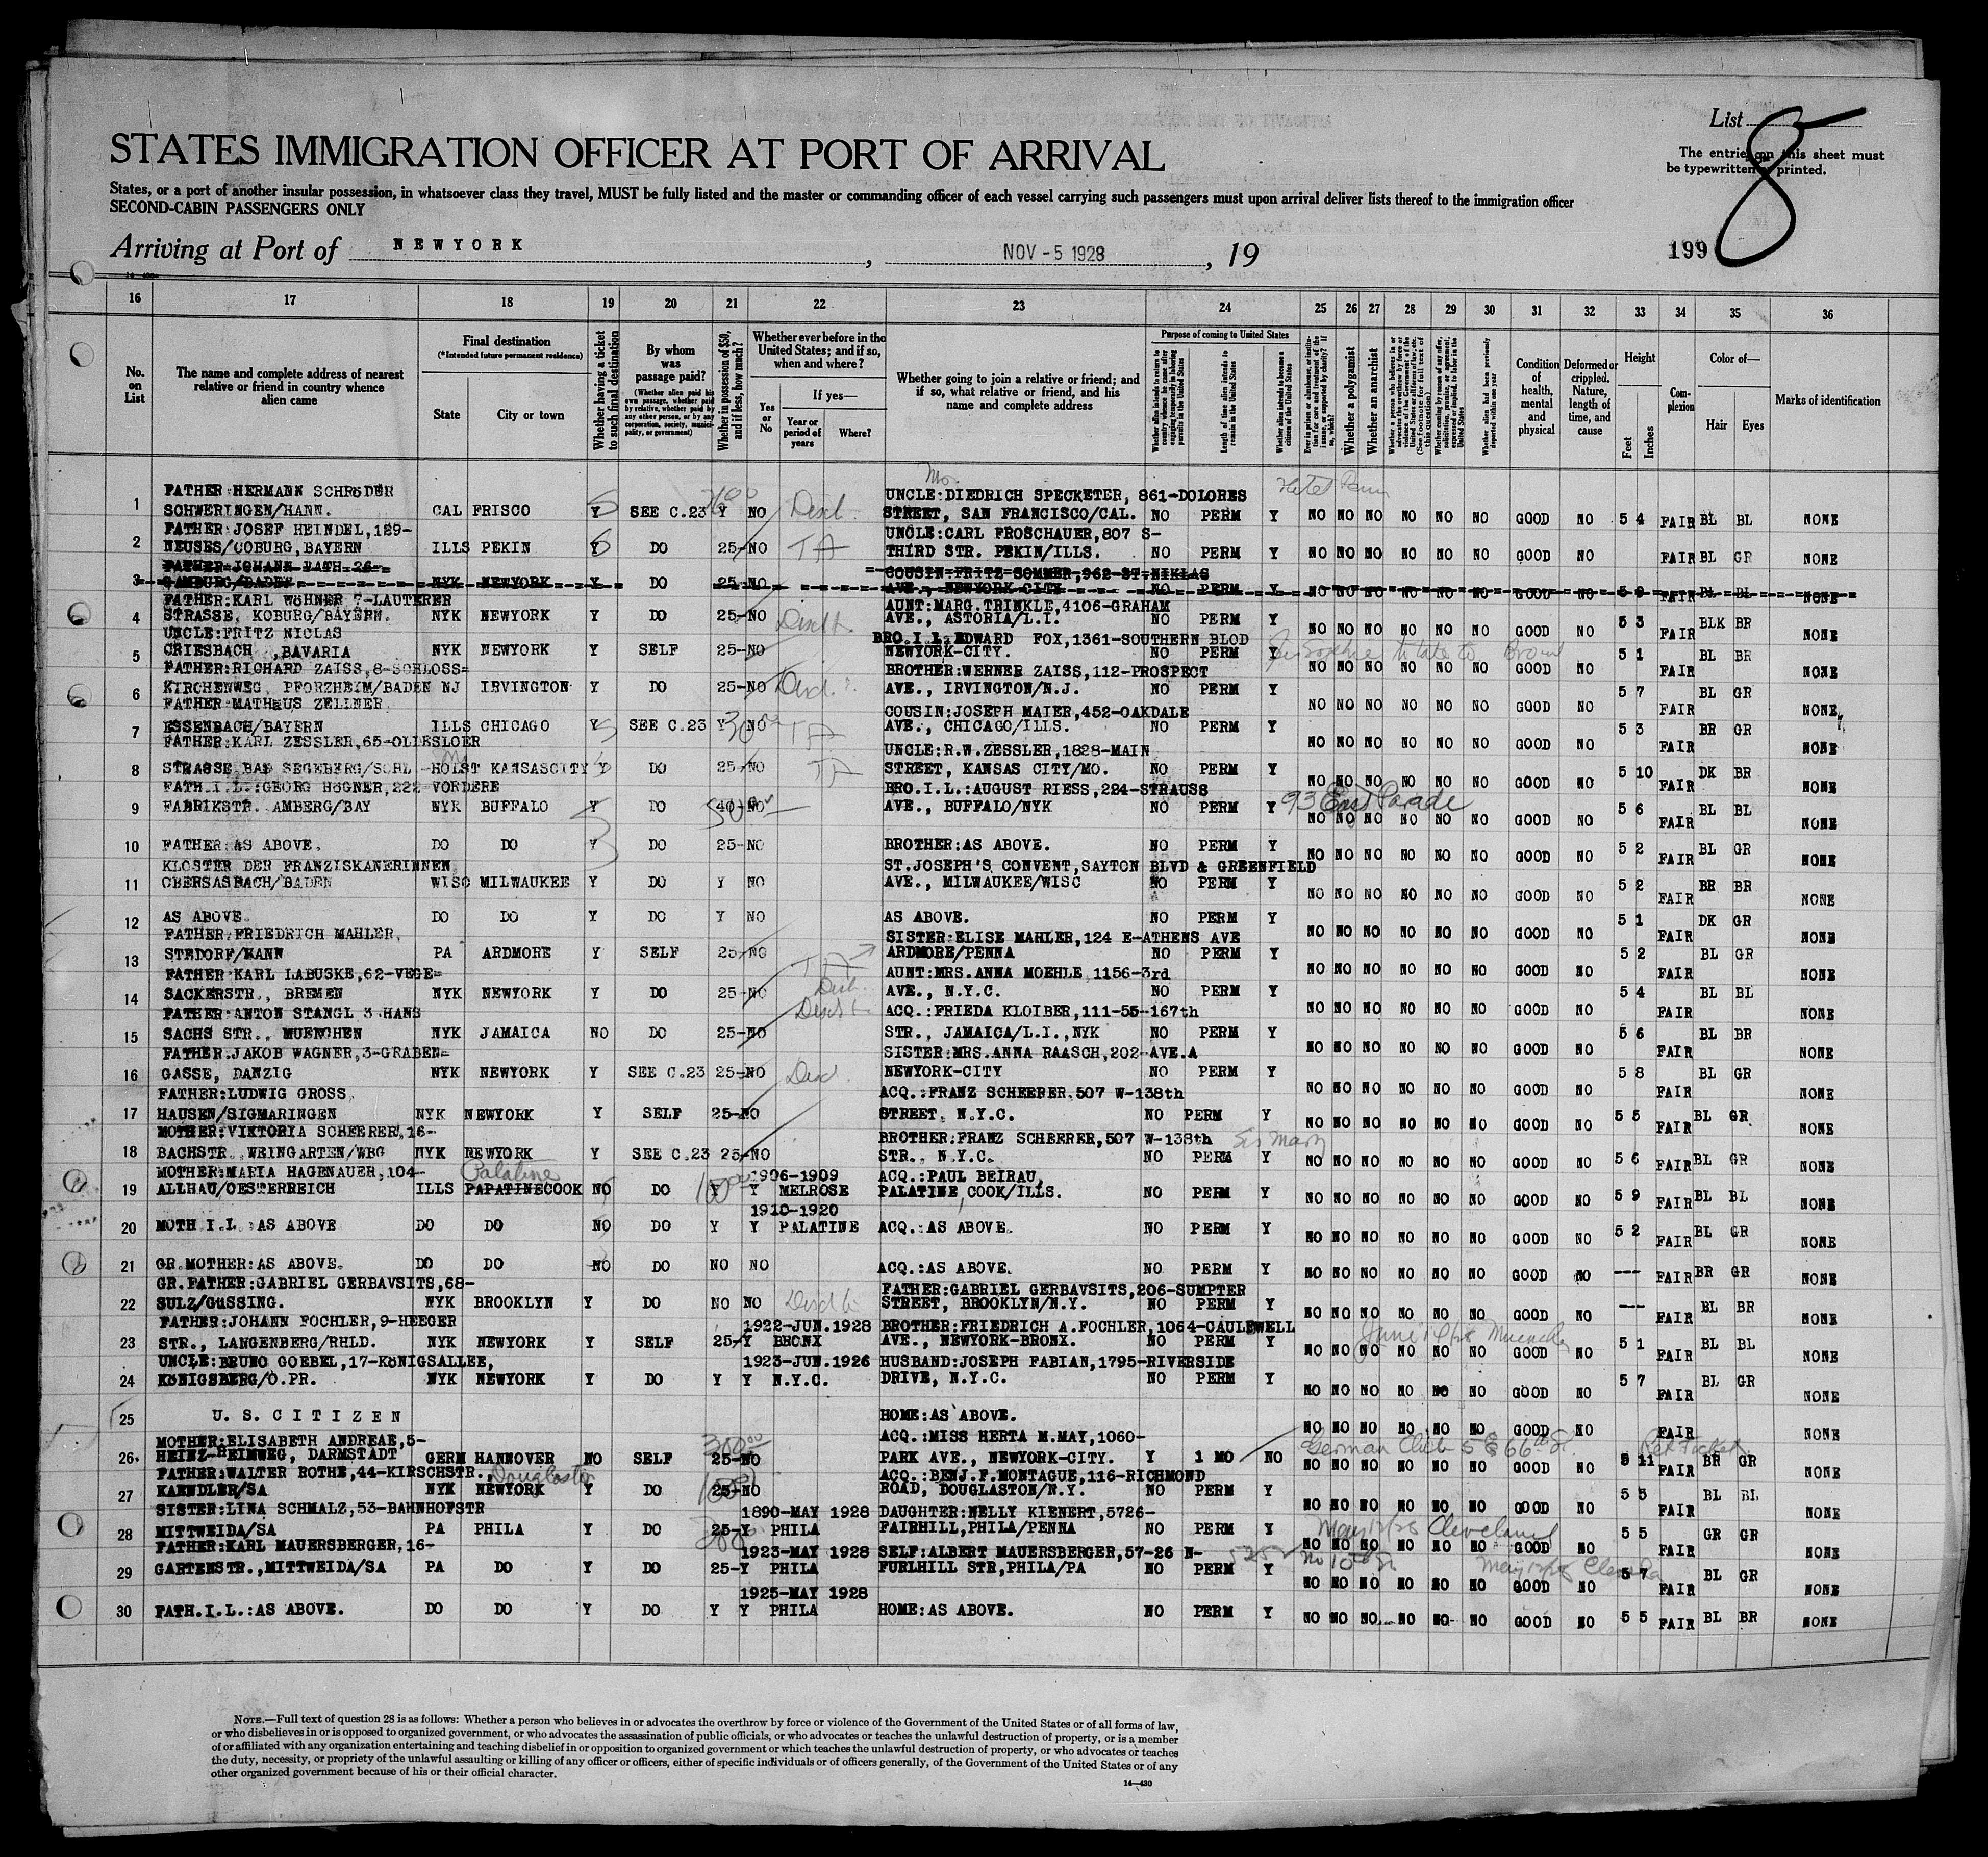 List 8
STATES IMMIGRATION OFFICER AT PORT OF ARRIVAL
The entries on this sheet must
be typewritten or printed.
States, or a port of another insular possession, in whatsoever class they travel, MUST be fully listed and the master or commanding officer of each vessel carrying such passengers must upon arrival deliver lists thereof to the immigration officer
SECOND-CABIN PASSENGERS ONLY
Arriving at Port of NEWYORK, NOV -5 1928, 19
199
16 17 18 19 20 21 22 23 24 25 26 27 28 29 30 31 32 33 34 35 36
No. on List
The name and complete address of nearest relative or friend in country whence alien came
Final destination
(*Intended future permanent residence)
State City or town
Whether having a ticket to such final destination
By whom was passage paid?
(Whether alien paid his own passage, whether paid by relative, whether paid by any other person, or by any corporation, society, municipality, or government)
Whether in possession of $50, and if less, how much?
Whether ever before in the United States; and if so, when and where?
Yes or No
If yes—
Year or period of years
Where?
Whether going to join a relative or friend; and if so, what relative or friend, and his name and complete address
Purpose of coming to United States
Whether alien intends to return to country whence he came after engaging temporarily in laboring pursuits in the United States
Length of time alien intends to remain in the United States
Whether alien intends to become a citizen of the United States
Whether a polygamist
Whether an anarchist
Condition of health, mental and physical
Deformed or crippled. Nature, length of time, and cause
Height
Feet Inches
Complexion
Color of—
Hair Eyes
Marks of identification
FATHER:HERMANN SCHRöDER UNCLE:DIEDRICH SPECKETER, 861-DOLORES
1 SCHWERINGEN/HANN. CAL FRISCO Y SEE C.23 Y NO Discl. STREET, SAN FRANCISCO/CAL. NO PERM Y NO NO NO NO NO NO GOOD NO 5 4 FAIR BL BL NONE
FATHER:JOSEF HEINDEL,129- UNCLE:CARL FROSCHAUER,807 S-
2 NEUSES/COBURG,BAYERN ILLS PEKIN Y DO 25- NO TA THIRD STR. PEKIN/ILLS. NO PERM Y NO NO NO NO NO NO GOOD NO FAIR BL GR NONE
FATHER:JOHANN RATH 26- COUSIN:FRITZ SOMMER,962-ST.NIKLAS
3 GAMBURG/BADEN NYK NEWYORK Y DO 25- NO AVE., NEWYORK-CITY NO PERM Y NO NO NO NO NO NO GOOD NO FAIR BL BL NONE
FATHER:KARL WöHNER 7-LAUTERER AUNT:MARG.TRINKLE,4106-GRAHAM
4 STRASSE, KOBURG/BAYERN. NYK NEWYORK Y DO 25- NO AVE., ASTORIA/L.I. NO PERM Y NO NO NO NO NO NO GOOD NO 5 3 FAIR BLK BR NONE
UNCLE:FRITZ NICLAS BRO.I.L.EDWARD FOX,1361-SOUTHERN BLOD
5 GRIESBACH ,BAVARIA NYK NEWYORK Y SELF 25- NO NEWYORK-CITY. NO PERM Y NO NO NO NO NO NO GOOD NO 5 1 FAIR BL BR NONE
FATHER:RICHARD ZAISS,8-SCHLOSS= BROTHER:WERNER ZAISS,112-PROSPECT
6 KIRCHENWEG, PFORZHEIM/BADEN NJ IRVINGTON Y DO 25- NO Discl. AVE., IRVINGTON/N.J. NO PERM Y NO NO NO NO NO NO GOOD NO 5 7 FAIR BL GR NONE
FATHER MATHäUS ZELLNER COUSIN:JOSEPH MAIER,452-OAKDALE
7 ESSENBACH/BAYERN ILLS CHICAGO Y SEE C.23 Y NO TA AVE., CHICAGO/ILLS. NO PERM Y NO NO NO NO NO NO GOOD NO 5 3 FAIR BR GR NONE
FATHER:KARL ZESSLER,65-OLDESLOER UNCLE:R.W.ZESSLER,1828-MAIN
8 STRASSE BAD SEGEBERG/SCHL-HOLST KANSASCITY Y DO 25- NO TA STREET, KANSAS CITY/MO. NO PERM Y NO NO NO NO NO NO GOOD NO 5 10 FAIR DK BR NONE
FATH.I.L.:GEORG HöGNER,222-VORDERE BRO.I.L.:AUGUST RIESS,224-STRAUSS
9 FABRIKSTR. AMBERG/BAY NYK BUFFALO Y DO 40- NO AVE., BUFFALO/NYK NO PERM Y 93 East Parade NO NO NO NO NO NO GOOD NO 5 6 FAIR BL BL NONE
10 FATHER:AS ABOVE. DO DO Y DO 25- NO BROTHER:AS ABOVE. NO PERM Y NO NO NO NO NO NO GOOD NO 5 2 FAIR BL GR NONE
KLOSTER DER FRANZISKANERINNEN ST.JOSEPH'S CONVENT,SAYTON BLVD & GREENFIELD
11 OBERSASBACH/BADEN WISC MILWAUKEE Y DO Y NO AVE., MILWAUKEE/WISC NO PERM Y NO NO NO NO NO NO GOOD NO 5 2 FAIR BR BR NONE
12 AS ABOVE. DO DO Y DO Y NO AS ABOVE. NO PERM Y NO NO NO NO NO NO GOOD NO 5 1 FAIR DK GR NONE
FATHER:FRIEDRICH MAHLER, SISTER:ELISE MAHLER,124 E-ATHENS AVE
13 STEDORF/HANN PA ARDMORE Y SELF 25- NO ARDMORE/PENNA NO PERM Y NO NO NO NO NO NO GOOD NO 5 2 FAIR BL GR NONE
FATHER KARL LABUSKE,62-VEGE= AUNT:MRS.ANNA MOEHLE 1156-3rd
14 SACKERSTR., BREMEN NYK NEWYORK Y DO 25- NO AVE., N.Y.C. NO PERM Y NO NO NO NO NO NO GOOD NO 5 4 FAIR BL BL NONE
FATHER:ANTON STANGL 3 HANS ACQ.:FRIEDA KLOIBER,111-55-167th
15 SACHS STR., MUENCHEN NYK JAMAICA NO DO 25- NO STR., JAMAICA/L.I.,NYK NO PERM Y NO NO NO NO NO NO GOOD NO 5 6 FAIR BL BR NONE
FATHER.JAKOB WAGNER,3-GRABEN= SISTER:MRS.ANNA RAASCH,202-AVE.A
16 GASSE, DANZIG NYK NEWYORK Y SEE C.23 25- NO Discl. NEWYORK-CITY NO PERM Y NO NO NO NO NO NO GOOD NO 5 8 FAIR BL GR NONE
FATHER:LUDWIG GROSS, ACQ.:FRANZ SCHEERER.507 W-138th
17 HAUSEN/SIGMARINGEN NYK NEWYORK Y SELF 25- NO STREET, N.Y.C. NO PERM Y NO NO NO NO NO NO GOOD NO 5 5 FAIR BL GR NONE
MOTHER:VIKTORIA SCHEERER,16- BROTHER:FRANZ SCHEERER,507 W-138th
18 BACHSTR. WEINGARTEN/WBG NYK NEWYORK Y SEE C.23 25- NO STR., N.Y.C. NO PERM Y NO NO NO NO NO NO GOOD NO 5 6 FAIR BL GR NONE
MOTHER:MARIA HAGENAUER,104- Palatine 1906-1909 ACQ.:PAUL BEIRAU,
19 ALLHAU/OESTERREICH ILLS PAPATINECOOK NO DO Y Y MELROSE PALATINE,COOK/ILLS. NO PERM Y NO NO NO NO NO NO GOOD NO 5 9 FAIR BL BL NONE
1910-1920
20 MOTH.I.L.:AS ABOVE DO DO NO DO Y Y PALATINE ACQ.:AS ABOVE. NO PERM Y NO NO NO NO NO NO GOOD NO 5 2 FAIR BL GR NONE
21 GR.MOTHER:AS ABOVE. DO DO NO DO NO NO ACQ.:AS ABOVE. NO PERM Y NO NO NO NO NO NO GOOD NO --- FAIR BR GR NONE
GR.FATHER:GABRIEL GERBAVSITS,68- FATHER:GABRIEL GERBAVSITS,206-SUMPTER
22 SULZ/GüSSING. NYK BROOKLYN Y DO NO NO STREET, BROOKLYN/N.Y. NO PERM Y NO NO NO NO NO NO GOOD NO --- FAIR BL BR NONE
FATHER:JOHANN FOCHLER,9-HEEGER 1922-JUN.1928 BROTHER:FRIEDRICH A.FOCHLER,1064-CAULEWELL
23 STR., LANGENBERG/RHLD. NYK NEWYORK Y SELF 25- Y BRONX AVE., NEWYORK-BRONX. NO PERM Y NO NO NO NO NO NO GOOD NO 5 1 FAIR BL BL NONE
UNCLE:BRUNO GOEBEL,17-KöNIGSALLEE, 1923-JUN.1926 HUSBAND:JOSEPH FABIAN,1795-RIVERSIDE
24 KöNIGSBERG/O.PR. NYK NEWYORK Y DO Y Y N.Y.C. DRIVE, N.Y.C. NO PERM Y NO NO NO NO NO NO GOOD NO 5 7 FAIR BL GR NONE
25 U. S. CITIZEN HOME:AS ABOVE. NO NO NO NO NO NO GOOD NO FAIR NONE
MOTHER:ELISABETH ANDREAE,5- ACQ.:MISS HERTA M.MAY,1060-
26. HEINZ-HEIMWEG, DARMSTADT GERM HANNOVER NO SELF 25- NO PARK AVE., NEWYORK-CITY. Y 1 MO NO NO NO NO NO NO NO GOOD NO 5 11 FAIR BR GR NONE
FATHER:WALTER ROTHE,44-KIRSCHSTR., Douglaston ACQ.:BENJ.F.MONTAGUE,116-RICHMOND
27 KAENDLER/SA NYK NEWYORK Y DO 25- NO ROAD, DOUGLASTON/N.Y. NO PERM Y NO NO NO NO NO NO GOOD NO 5 5 FAIR BL BL NONE
SISTER:LINA SCHMALZ,53-BAHNHOFSTR 1890-MAY 1928 DAUGHTER:NELLY KIENERT,5726-
28 MITTWEIDA/SA PA PHILA Y DO 25- Y PHILA FAIRHILL,PHILA/PENNA NO PERM Y NO NO NO NO NO NO GOOD NO 5 5 FAIR GR GR NONE
FATHER:KARL MAUERSBERGER,16- 1923-MAY 1928 SELF:ALBERT MAUERSBERGER,57-26 N-
29 GARTENSTR.,MITTWEIDA/SA PA DO Y DO 25- Y PHILA FURLHILL STR,PHILA/PA NO PERM Y NO NO NO NO NO NO GOOD NO 5 7 FAIR BL GR NONE
1925-MAY 1928
30 FATH.I.L.:AS ABOVE. DO DO Y DO Y Y PHILA HOME:AS ABOVE. NO PERM Y NO NO NO NO NO NO GOOD NO 5 5 FAIR BL BR NONE
NOTE.—Full text of question 28 is as follows: Whether a person who believes in or advocates the overthrow by force or violence of the Government of the United States or of all forms of law,
or who disbelieves in or is opposed to organized government, or who advocates the assassination of public officials, or who advocates or teaches the unlawful destruction of property, or is a member
of or affiliated with any organization entertaining and teaching disbelief in or opposition to organized government or which teaches the unlawful destruction of property, or who advocates or teaches
the duty, necessity, or propriety of the unlawful assaulting or killing of any officer or officers, either of specific individuals or of officers generally, of the Government of the United States or of any
other organized government because of his or their official character.
14—430